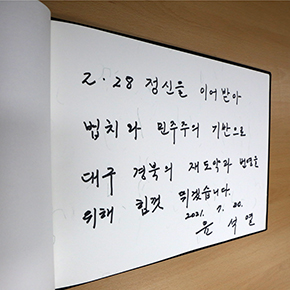 2·28 정신을 이어받아
법치와 민주주의 기반으로
대구 경북의 재도약과 번영을
위해 힘껏 뛰겠습니다.
2021. 7. 20.
윤 석 열